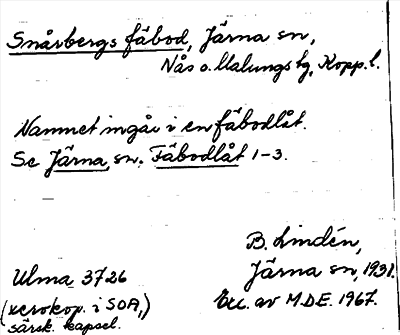 Snårbergs fäbod, Järna sn,
Nås o. Malungs tg, Kopp. l.
Namnet ingår i en fäbodlåt.
Se Järna, sn. Fäbodlåt 1-3.
B. Lindén,
Ulma 3726
Järna sn, 1931.
(xerokop. i SOA,)
Exc. av M.D.E. 1967.
särsk. kapsel.